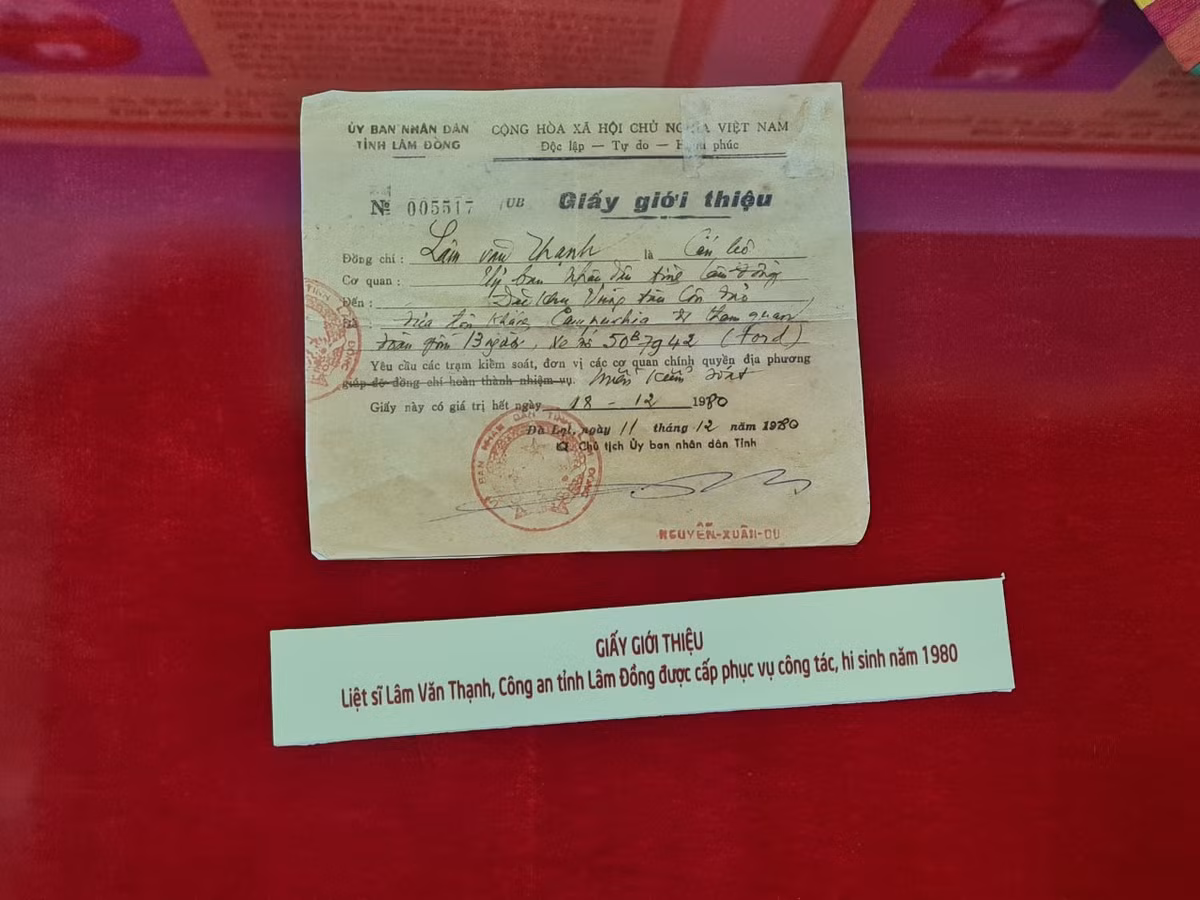 ỦY BAN NHÂN DÂN
TỈNH LÂM ĐỒNG
CỘNG HÒA XÃ HỘI CHỦ NGHĨA VIỆT NAM
Độc lập — Tự do — Hạnh phúc
№ 005517 /UB Giấy giới thiệu
Đồng chí : Lâm văn Thạnh là Cán bộ
Cơ quan : Uỷ ban Nhân dân tỉnh Lâm Đồng
Đến : Đặc Khu Vũng tàu Côn Đảo
Campuchia tham quan
Đoàn gồm 13 người, xe số 50B 7942 (Ford)
Yêu cầu các trạm kiểm soát, đơn vị các cơ quan chính quyền địa phương
giúp đỡ đồng chí hoàn thành nhiệm vụ. Miễn Kiểm soát
Giấy này có giá trị hết ngày 18 - 12 1980
Đà Lạt, ngày 11 tháng 12 năm 1980
Chủ tịch Ủy ban nhân dân Tỉnh
NGUYỄN-XUÂN-DU
GIẤY GIỚI THIỆU
Liệt sĩ Lâm Văn Thạnh, Công an tỉnh Lâm Đồng được cấp phục vụ công tác, hi sinh năm 1980